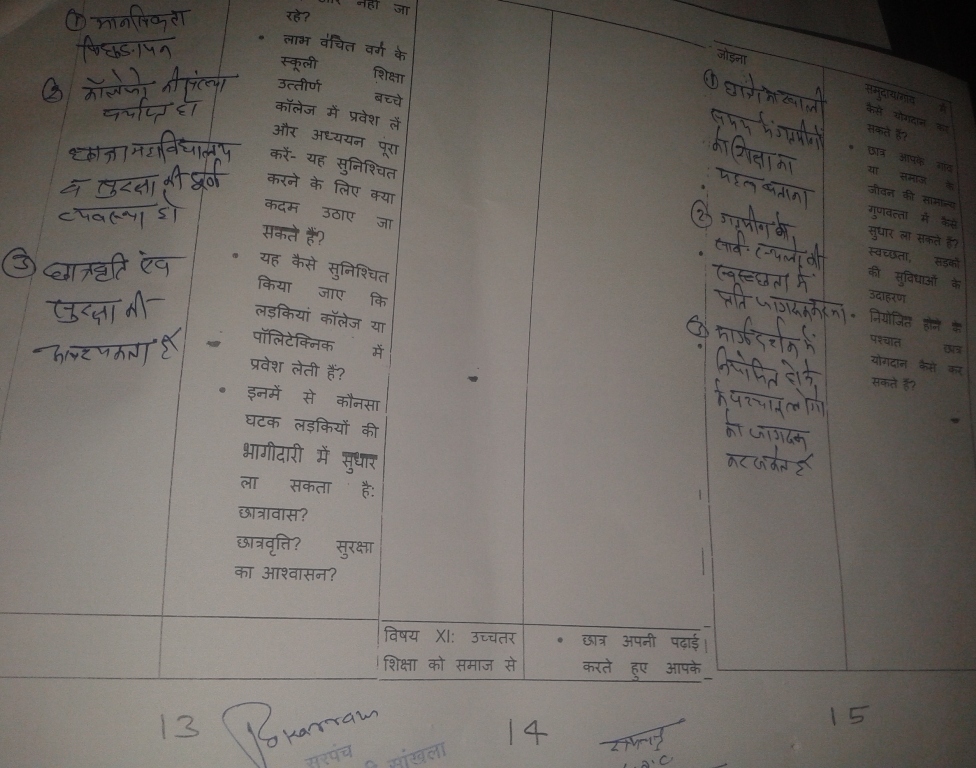 ① मानसिकता
पिछड़ापन
② कॉलेजो की संख्या
पर्याप्त हो
व सुरक्षा की पूर्ण
व्यवस्था हो
③ छात्रवृति एंव
सुरक्षा की
आवश्यकता है
और नहीं जा
रहे?
• लाभ वंचित वर्ग के
स्कूली शिक्षा
उत्तीर्ण बच्चे
कॉलेज में प्रवेश लें
और अध्ययन पूरा
करें- यह सुनिश्चित
करने के लिए क्या
कदम उठाए जा
सकते हैं?
• यह कैसे सुनिश्चित
किया जाए कि
लड़कियां कॉलेज या
पॉलिटेक्निक में
प्रवेश लेती हैं?
• इनमें से कौनसा
घटक लड़कियों की
भागीदारी में सुधार
ला सकता है:
छात्रावास?
छात्रवृत्ति? सुरक्षा
का आश्वासन?
विषय XI: उच्चतर
शिक्षा को समाज से
• छात्र अपनी पढाई
करते हुए आपके
जोड़ना
① छात्रों को खाली
समय में ग्रामीणों
को शिक्षा का
महत्व बताना
②
स्वच्छता में
प्रति जागरूक करना
③ मार्गदर्शन में
नियोजित होने
के पश्चात लोगो
को जागरूक
कर सकते है
कैसे योगदान कर
सकते हैं?
• छात्र आपके गांव
या समाज के
जीवन की सामान्य
गुणवत्ता में कैसे
सुधार ला सकते हैं?
स्वच्छता, सड़को
की सुविधाओं के
उदाहरण
• नियोजित होने के
पश्चात छात्र
योगदान कैसे कर
सकते हैं?
13
सरपंच
सांखला
14
15